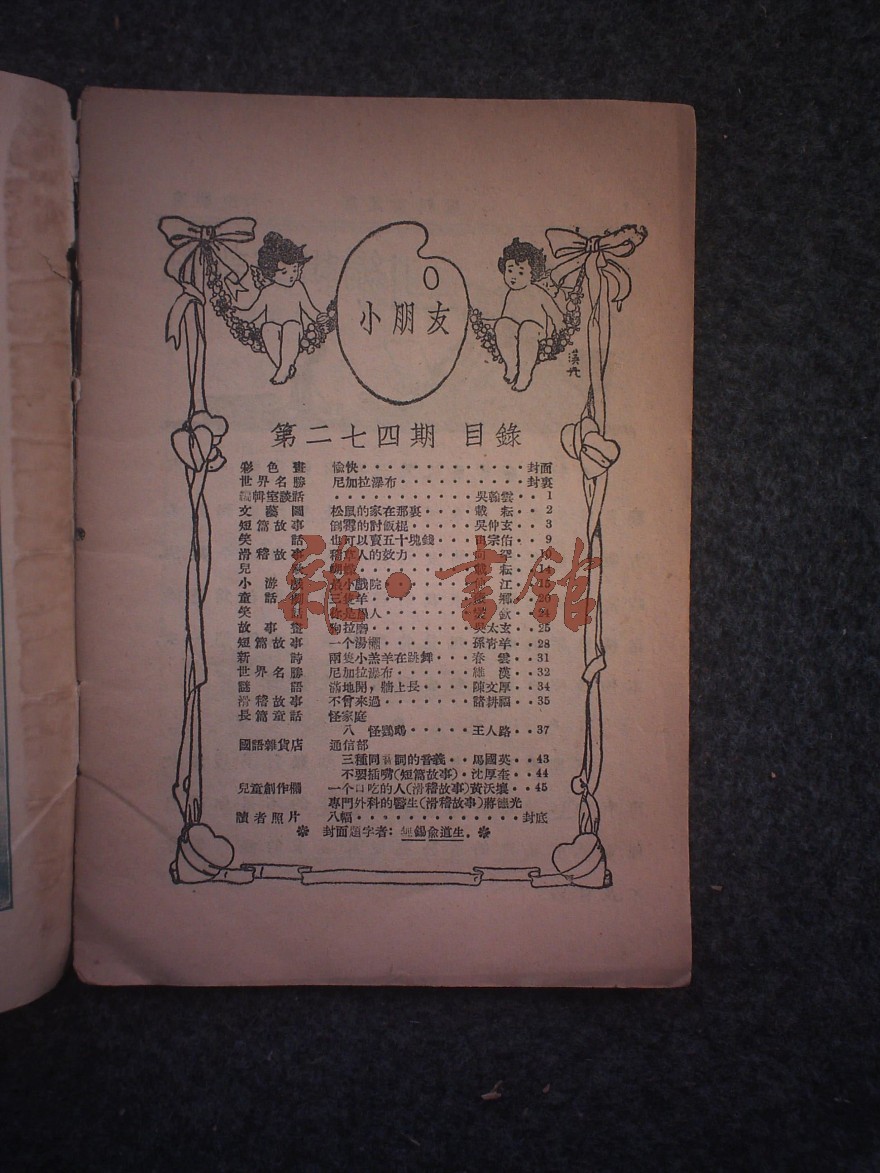 小朋友
漢
第二七四期 目錄
彩色畫 愉快・・・・・・・・・・・・封面
世界名勝 尼加拉瀑布・・・・・・・・・封裏
編輯室談話 ・・・・・・・・・・吳翰雲・・1
文藝圖 松鼠的家在那裏・・・・戴耘・・2
短篇故事 倒霉的討飯棍・・・・吳仲玄・・3
笑話 也可以賣五十塊錢・・・宗佑・・9
滑稽故事 稻草人的效力・・・・10
兒歌 耘・・14
小游戲 最小戲院・・・・江・・15
童話 三隻羊・・・・20
笑話 你是愚人・・・・24
故事畫 狗拉磨・・・・・・吳太玄・・25
短篇故事 一个湯糰・・・・・孫青羊・・28
新詩 兩隻小羔羊在跳舞・・・春雲・・31
世界名勝 尼加拉瀑布・・・・・維漢・・32
謎語 滿地開，牆上長・・・・陳文厚・・34
滑稽故事 不曾來過・・・・・諸耕福・・35
長篇童話 怪家庭
八 怪鸚鵡・・・・・王人路・・37
國語雜貨店 通信部
三種同音詞的音義・・馬國英・・43
不要插嘴(短篇故事)・沈厚奎・・44
兒童創作欄 一个口吃的人(滑稽故事)黃沃壤・・45
專門外科的醫生(滑稽故事)蔣德光
讀者照片 八幅・・・・・・・・・・・・封底
※ 封面題字者：無錫俞道生．※
雅・書館